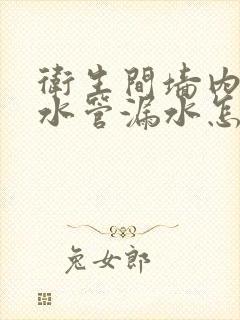 衛生間墻內
水管漏水怎
兔女郎